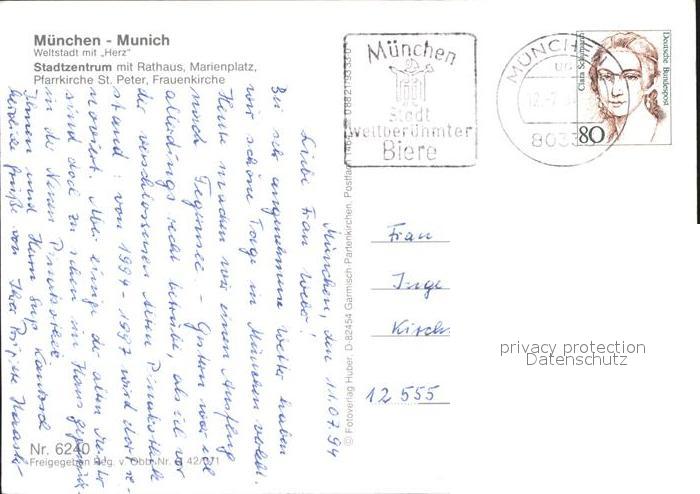 München - Munich
Weltstadt mit „Herz"
Stadtzentrum mit Rathaus, Marienplatz,
Pfarrkirche St. Peter, Frauenkirche
München
Stadt
weltberühmter
Biere
MÜNCHEN
80
Clara Schumann
Deutsche Bundespost
80
München, den 11.07.94
Liebe Frau
Bei sehr angenehmem Wetter haben
wir schöne Tage in München verlebt.
Heute machen wir einen Ausflug
nach Tegernsee. - Gestern war ich
allerdings sehr betrübt, als ich vor
der verschlossenen Alten Pinakothek
stand: von 1994-1997 wird dort re-
noviert. Aber einige der alten Meister
sind doch zu sehen im Haus gegenüber,
in der Neuen Pinakothek.
Ihnen und Herrn
herzliche Grüße von Ihrer
© Fotoverlag Huber, D-82454 Garmisch-Partenkirchen, Postfach
Frau
Inge
Kirch
12 555
privacy protection
Datenschutz
Nr. 6240
Freigegeben Reg. v. Obb. Nr. G 42/